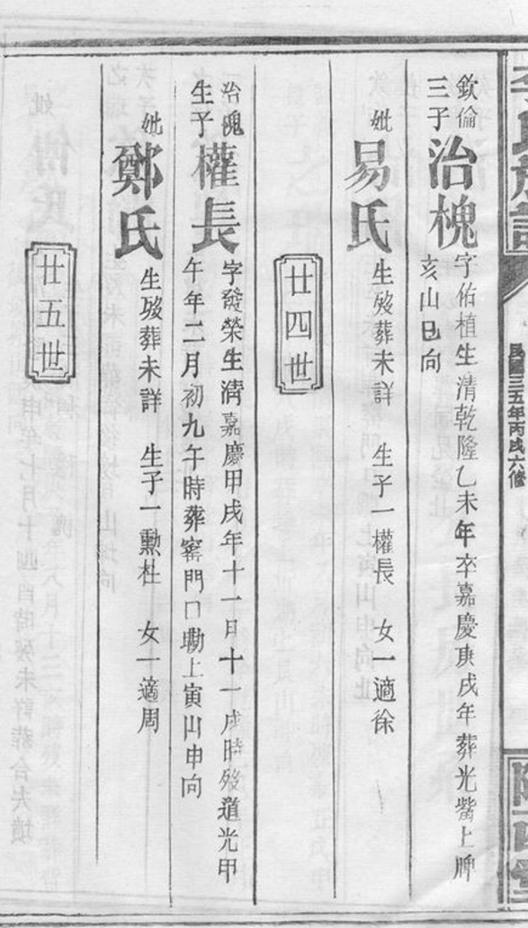 李氏族譜
民國三五年丙戌六修
欽倫
三子
治槐
字佑植生清乾隆乙未年卒嘉慶庚戌年葬光嘴上脾
亥山巳向
妣
易氏
生歿葬未詳 生子一權長 女一適徐
廿四世
治槐
生子
權長
字發榮生清嘉慶甲戌年十一日十一戌時歿道光甲
午年二月初九午時葬窰門口坳上寅山申向
妣
鄭氏
生歿葬未詳 生子一勳杜 女一適周
廿五世